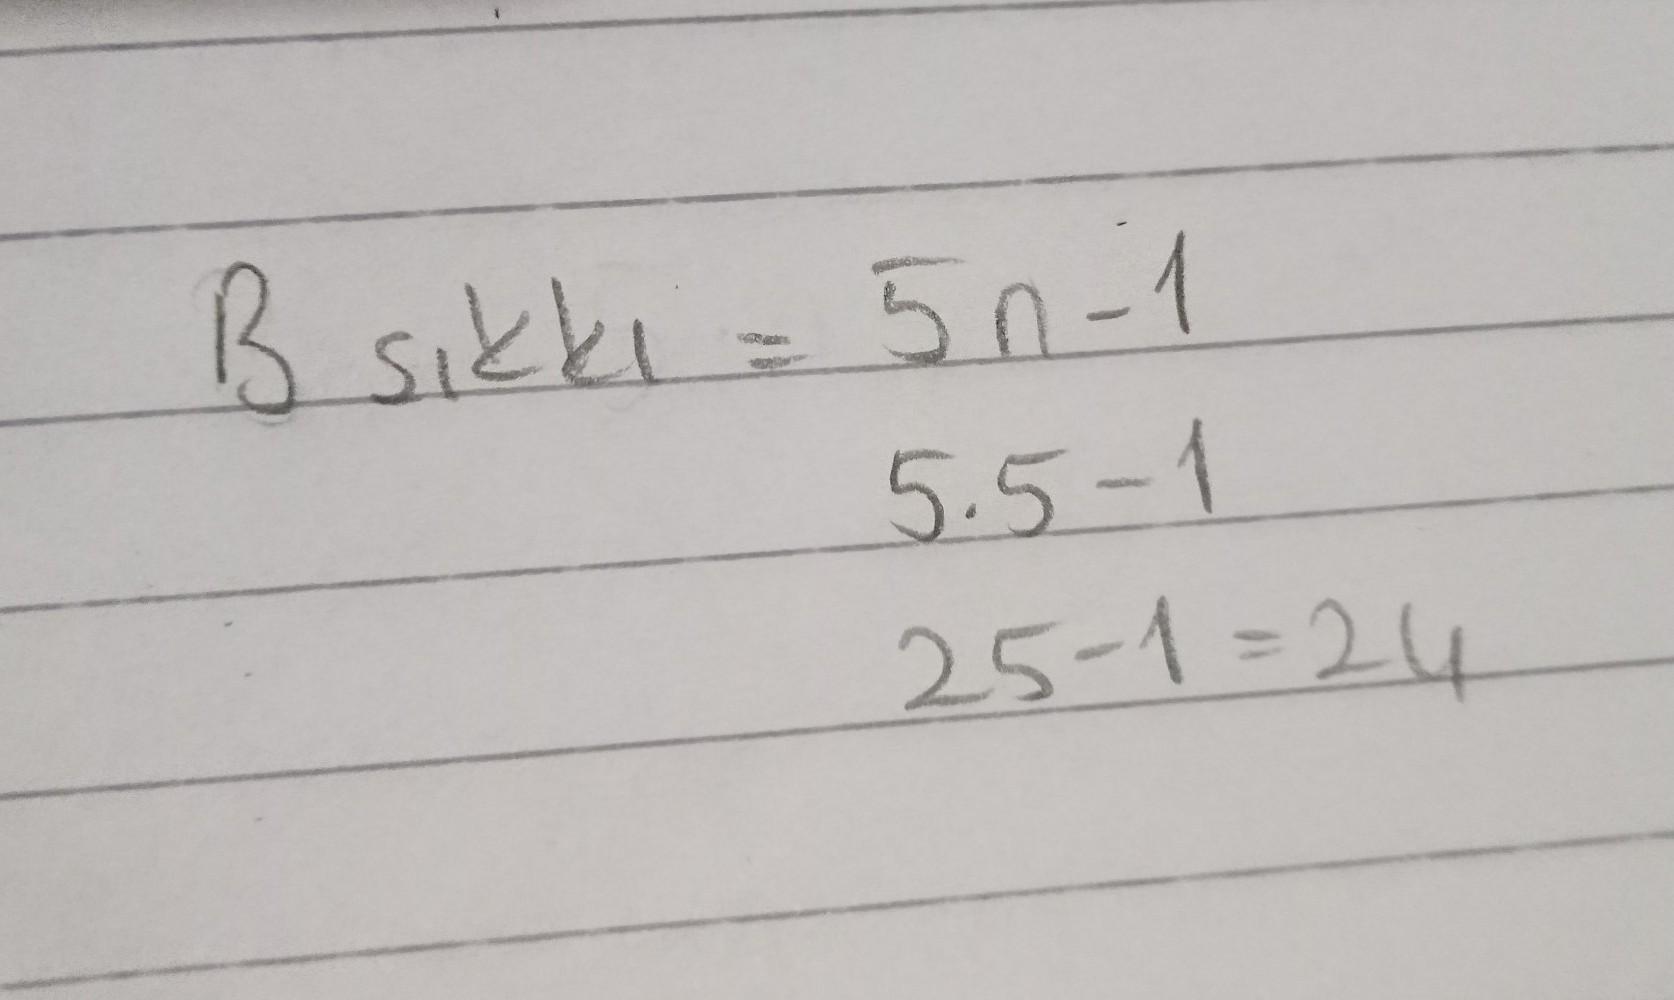 B sıkkı = 5n-1
5.5-1
25-1=24